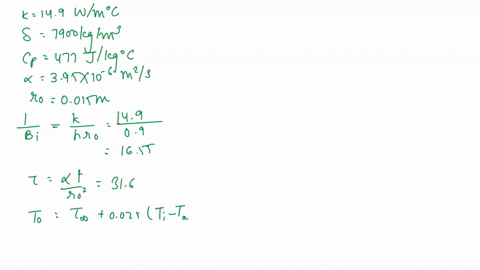 k = 14.9 W/m°C
δ = 7900 kg/m³
Cp = 477 J/kg°C
α = 3.95×10⁻⁶ m²/s
r₀ = 0.015m
1/Bi = k/hr₀ = 14.9/0.9
= 16.55
τ = αt/r₀² = 31.6
T₀ = T∞ + 0.025 (Ti-Ta